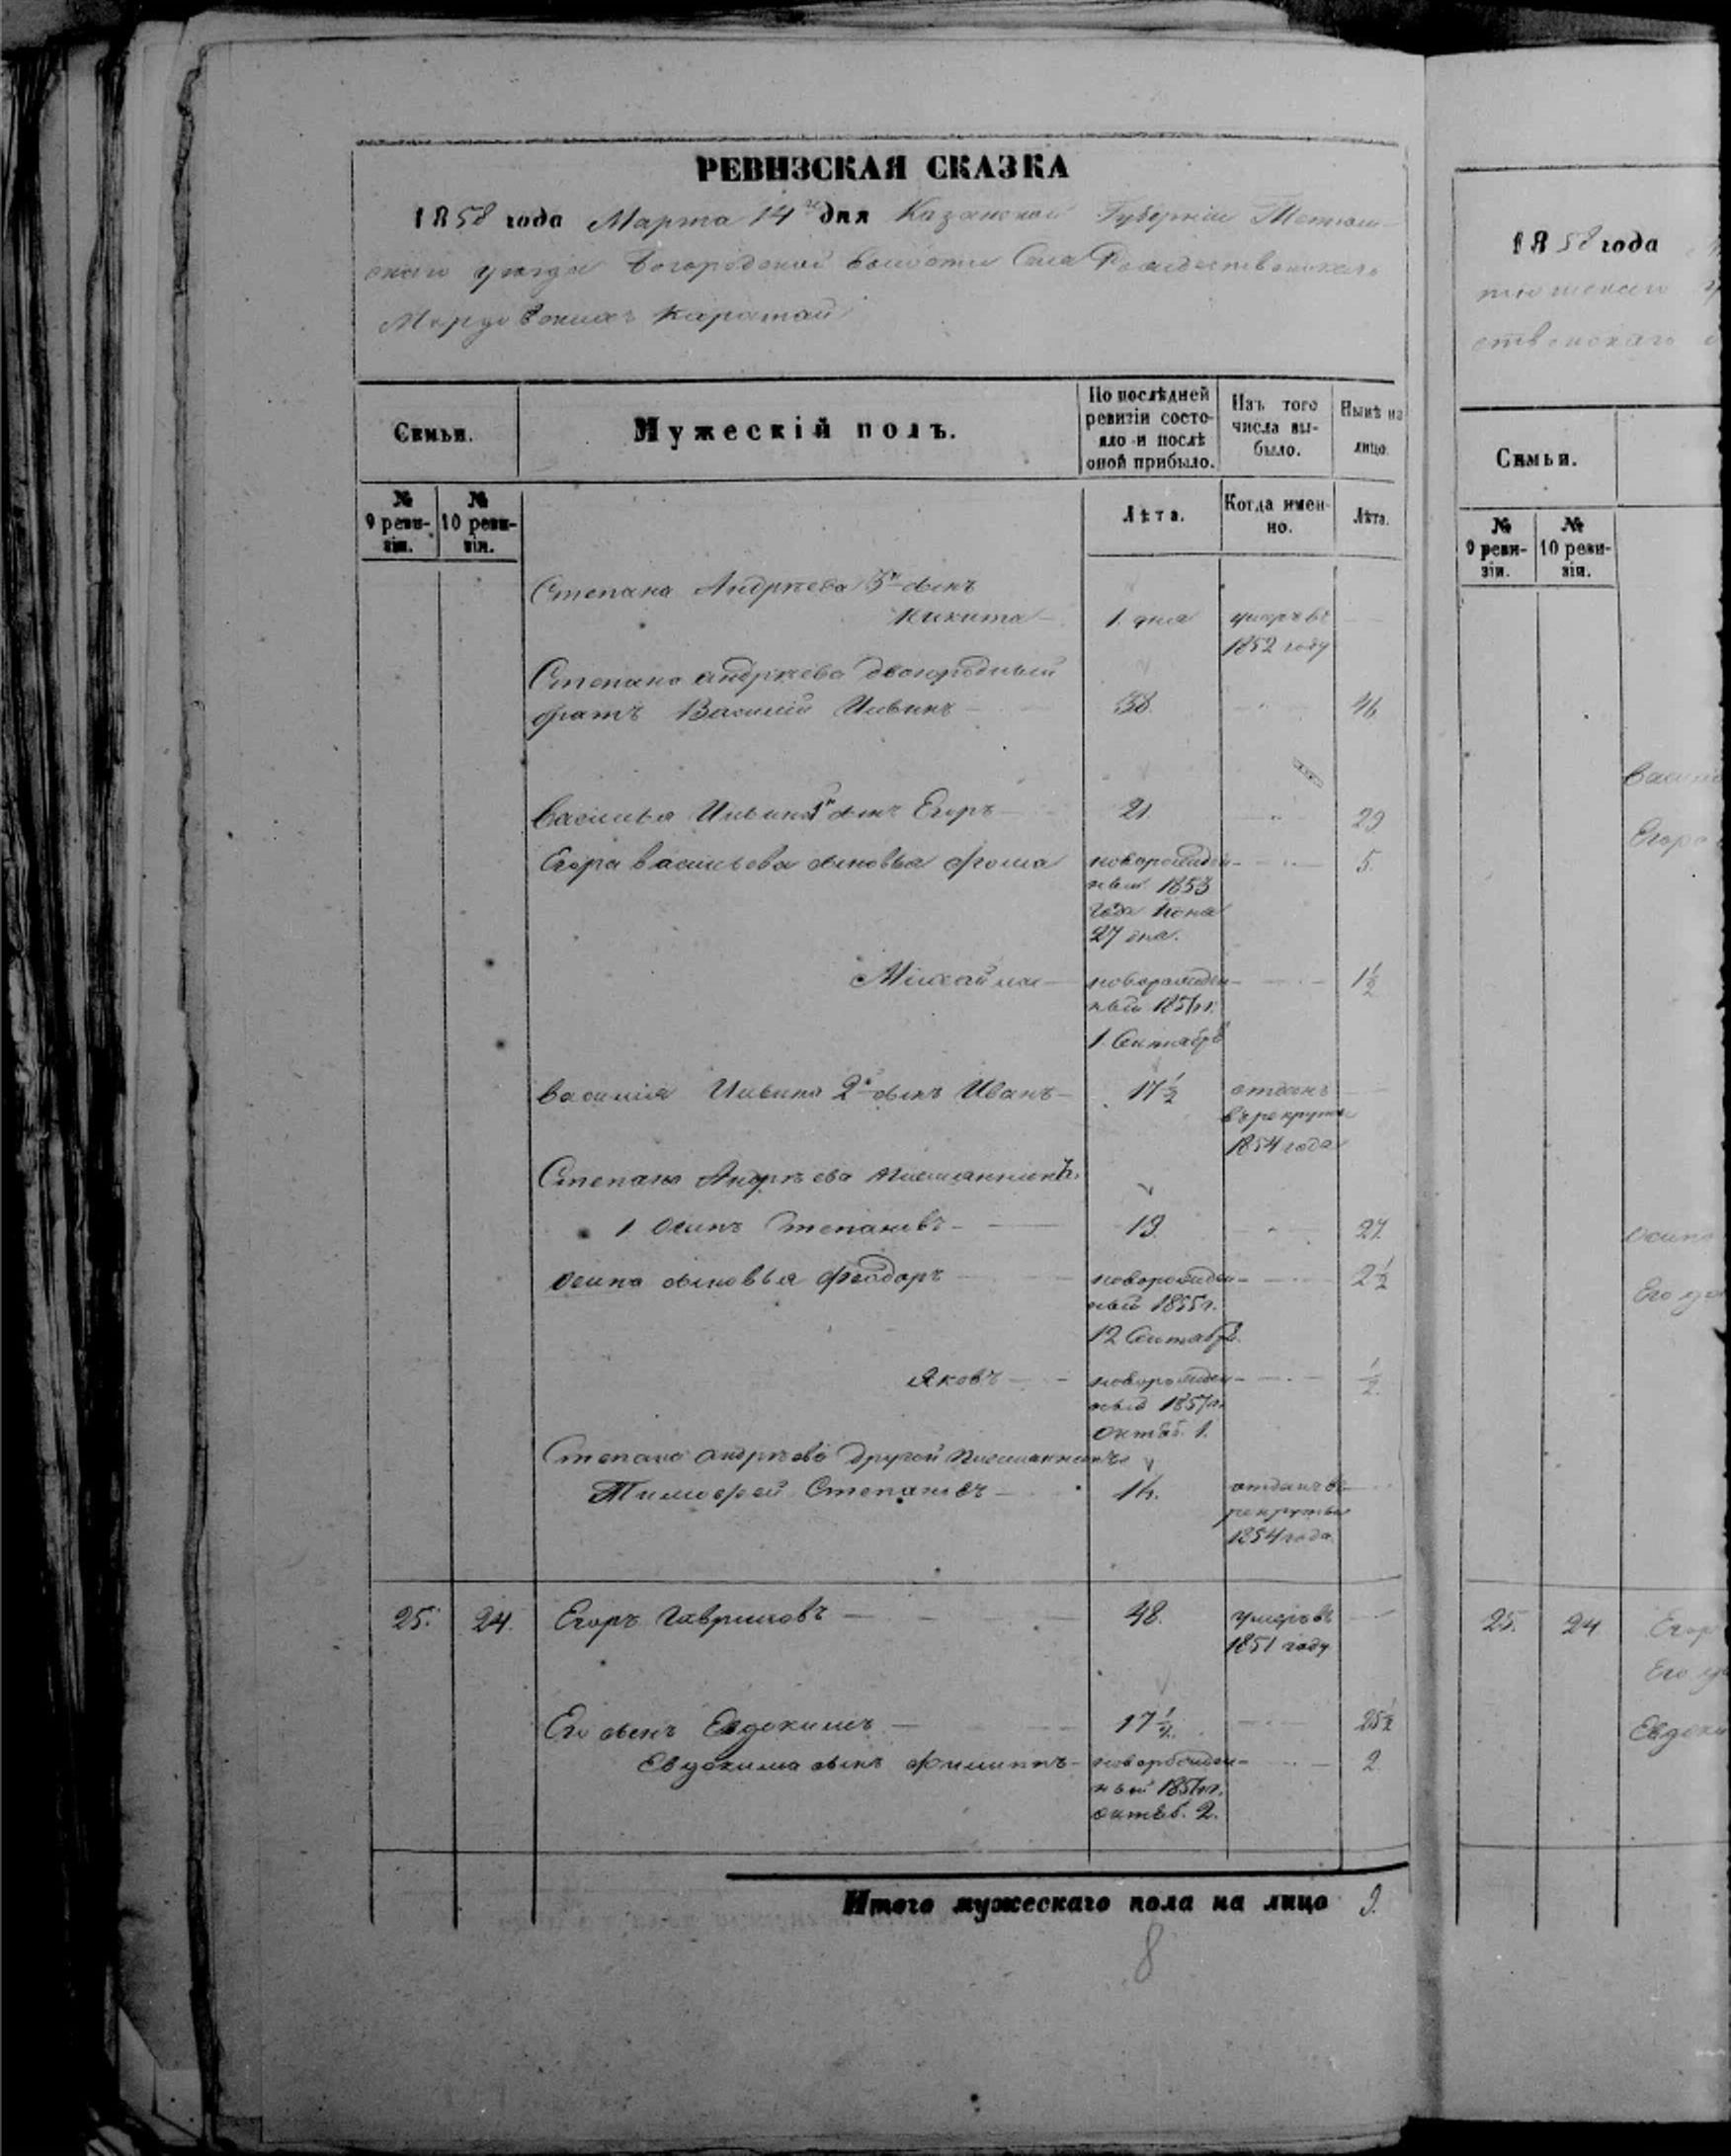 РЕВИЗСКАЯ СКАЗКА
1858 года Марта 14го дня Казанской Губерніи Тетюш-
скаго уезда Богородской волости Села Рождественскаго
Мордовских Каратай
Семьи.
Мужескій полъ.
По послѣдней ревизіи состояло и послѣ оной прибыло.
Изъ того числа выбыло.
Нынѣ на лицо.
№ 9 ревизіи.
№ 10 ревизіи.
Лѣта.
Когда именно.
Лѣта.
Степана Андрѣева 3й сынъ
Никита 1. дня умеръ въ
1852 году
Степана Андрѣева двоюродный
братъ Василій Ильинъ 38. 46
Василья Ильина 1й сынъ Егоръ 21 29
Егора Васильева сыновья Фома новорожден- 5.
ный 1853
года Іюня
27 дня.
Михайла новорожден- 1½
ный 1857 г.
1 Сентября
Василія Ильина 2й сынъ Иванъ 17½ отданъ
въ рекруты
1854 года
Степана Андрѣева племянникъ
1 Осипъ Степановъ 19. 27.
Осипа сыновья Феодоръ новорожден- 2½
ный 1855 г.
12 Сентябр.
Яковъ новорожден- ½
ный 1857 г.
октяб. 1.
Степана Андрѣева другой племянникъ
Тимофей Степановъ 14. отданъ въ
рекруты
1854 года
25. 24. Егоръ Гавриловъ 48. умеръ въ
1851 году
Его сынъ Евдокимъ 17½. 25½
Евдокима сынъ Филиппъ новорожден- 2.
ный
октяб. 2.
Итого мужескаго пола на лицо 9.
8
1858 года
ственскаго
Семьи.
№ 9 ревизіи.
№ 10 ревизіи.
Егора
Осипа
25. 24 Егор
Евдоки